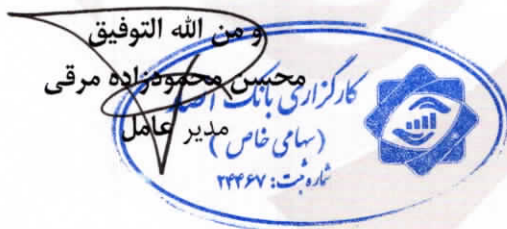 و من الله التوفیق
محسن محمودزاده مرقی
مدیر عامل
کارگزاری بانک
(سهامی خاص)
شماره ثبت: ۲۴۴۶۷